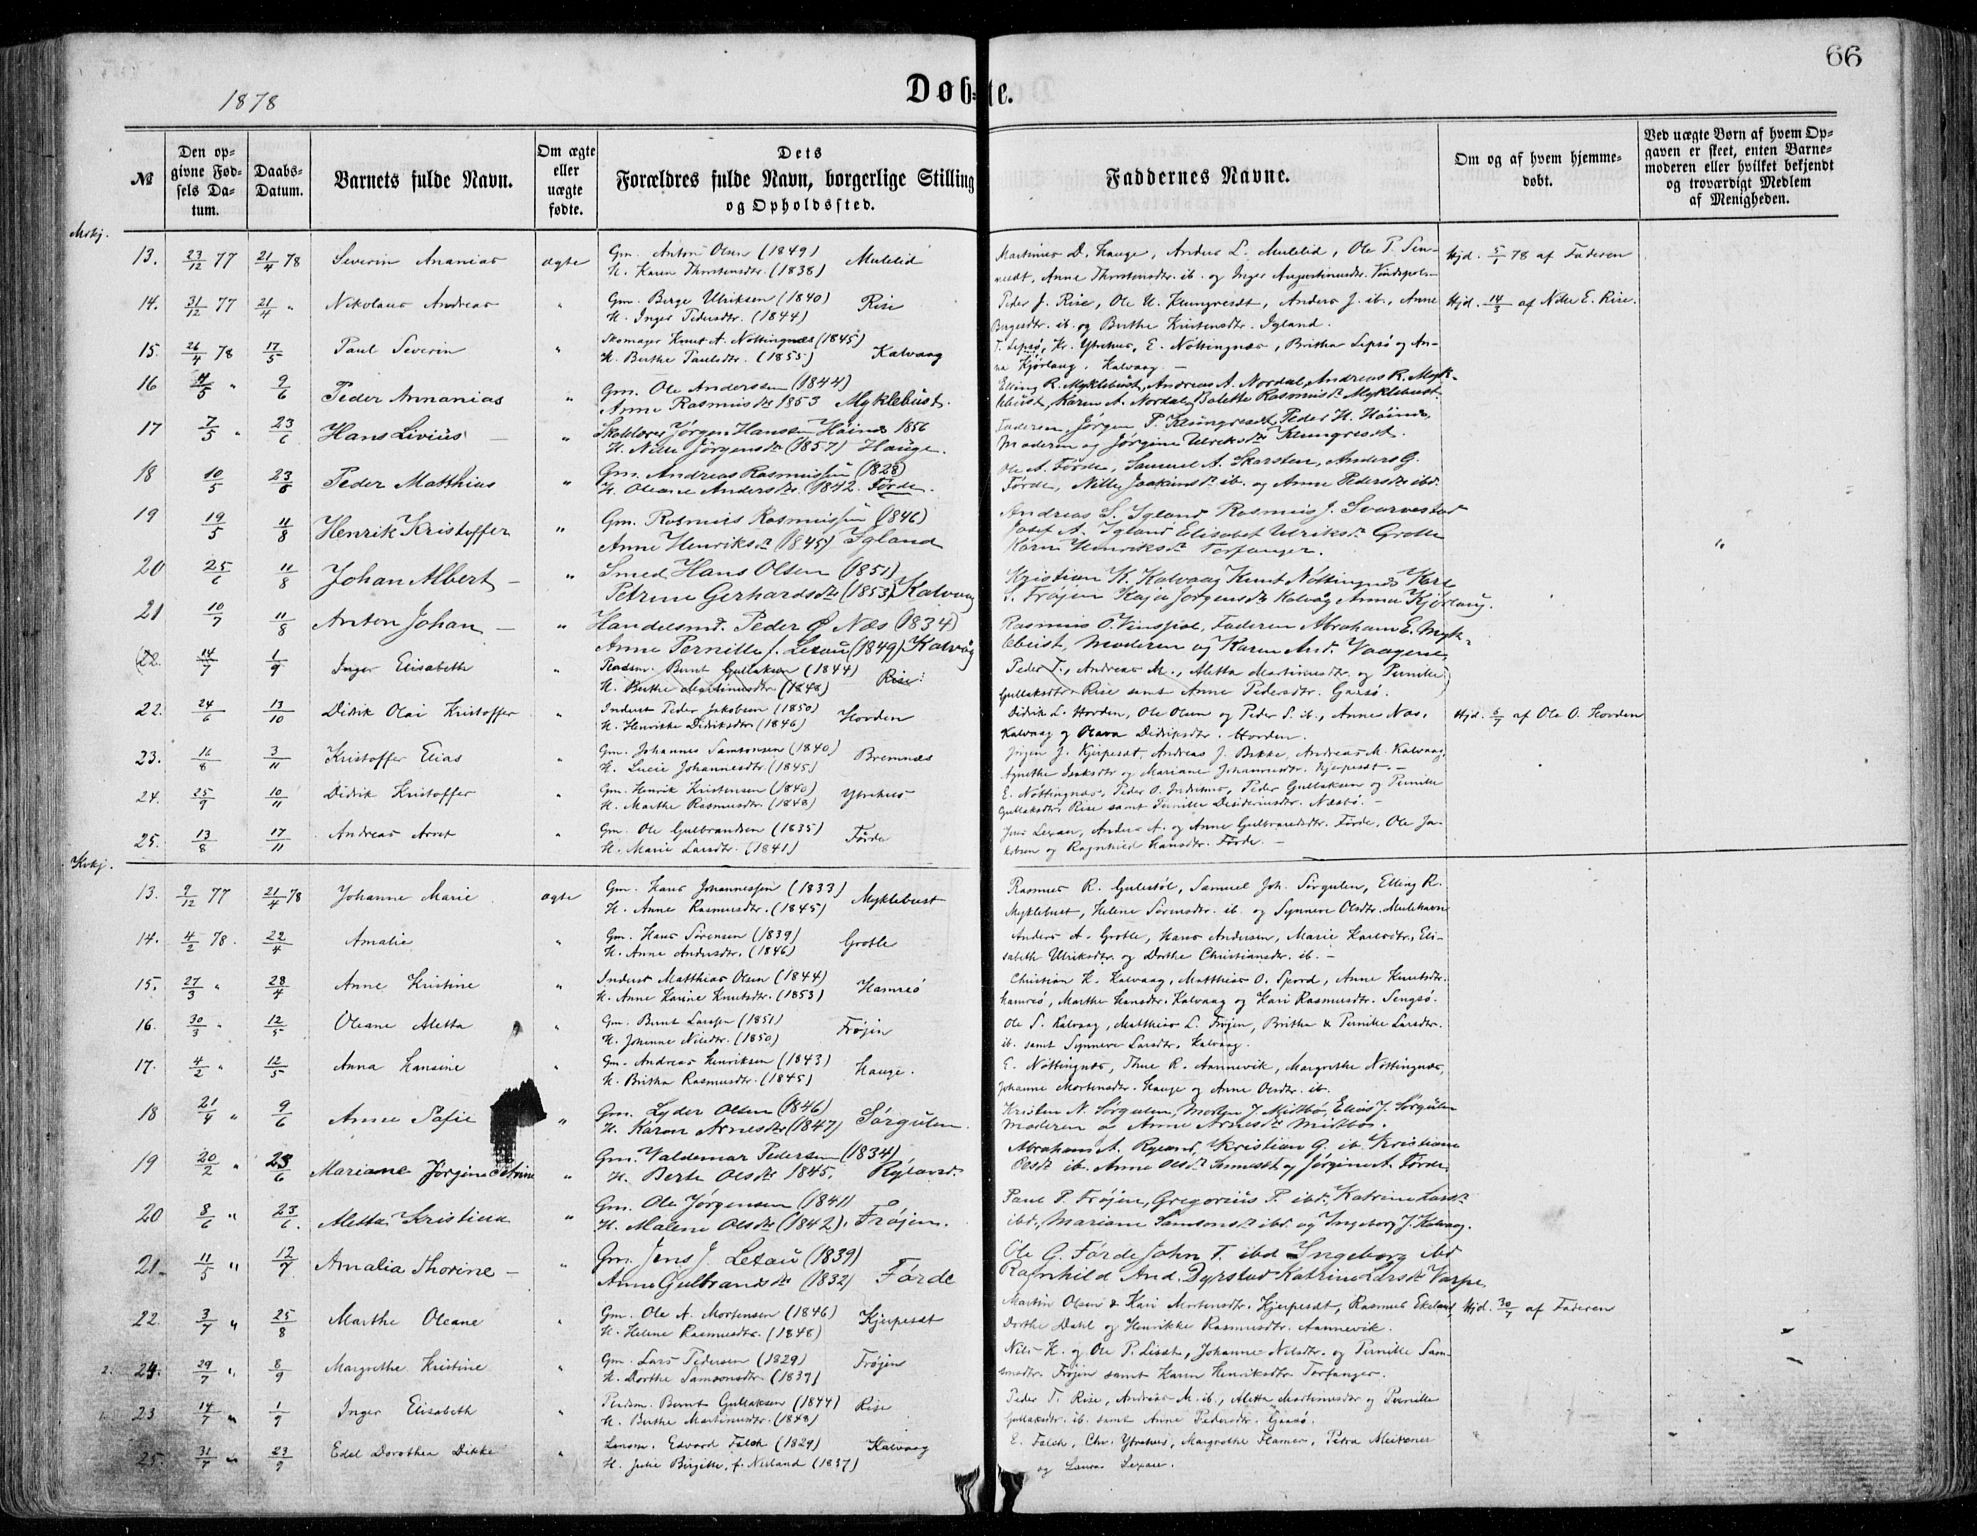 66
1878
Døbte.
№
Den opgivne Fødsels Datum.
Daabs-Datum.
Barnets fulde Navn.
Om ægte eller uægte fødte.
Dets Forældres fulde Navn, borgerlige Stilling og Opholdssted.
Faddernes Navne.
Om og af hvem hjemmedøbt.
Ved uægte Børn af hvem Opgaven er skeet, enten Barnemoderen eller hvilket bekjendt og troværdigt Medlem af Menigheden.
Mskj.
13. 23/12 77 21/4 78 Severin Ananias ægte Gm. Anton Olsen (1849) Mulelid
H. Karen Thorstensdtr. (1838)
Martinus D. Hauge, Anders L. Mulelid, Ole P. Sen-
nedt, Anne Thorstensdtr. ib. og Inger Augustinusdtr. Vindspoln
Hjd. 5/1 78 af Faderen
14. 31/12 77 21/4 " Nikolaus Andreas " Gm. Berge Ulriksen (1840) Rise
H. Inger Pedersdtr. (1844)
Peder J. Rise, Ole U. Klungresdt, Anders J. ib., Anne
Bergesdtr. ib. og Berthe Kristensdtr. Igland.
Hjd. 14/3 af Nils E. Rise.
15. 26/4 78 17/5 Paul Severin " Skomager Knut A. Nøttingnæs (1845)
H. Berthe Paulsdtr. (1855) Kalvaag
T. Lepsø, Kr. Ytrehus, E. Nøttingnæs, Britha Lepsø og An-
na Kjørlaug. Kalvaag. -
16 4/5 " 9/6 Peder Annanias " Gm. Ole Anderssen (1844)
Anne Rasmusdtr 1853 Myklebust.
Elling R. Myklebust, Andreas A. Nordal, Andreas R. Myk-
lebust, Karen A. Nordal, Balette Rasmusdtr Myklebust
17 7/5 " 23/6 Hans Livius - " Skolelærer Jørgen Hanssen Høines 1856
H. Nille Jörgensdtr (1857) Hauge.
Faderen, Jörgen P. Klungresedt, Peder H. Höines,
Moderen og Jörgine Ulriksdtr Klungresedt.
18 10/5 23/6 Peder Matthias " Gm. Andreas Rasmussen (1828)
H. Oleane Andersdtr. (1842. Førde.
Ole A. Førde, Samuel A. Skarsten, Anders G.
Førde, Nille Joakimsdtr ib. og Anne Pedersdtr ibd.
19 19/5 11/8 Henrik Kristoffer " Gm. Rasmus Rasmussen (1846)
Anne Henriksdtr (1845) Igland
Andreas S. Igland Rasmus J. Svarvestad
Josef A. Igland Elisabet Ulriksdtr Grotle
Karn Henriksdtr Torfanger.
"
20 25/6 11/8 Johan Albert - " Smed Hans Olsen (1851)
Petrine Gerhardsdtr (1853) Kalvaag
Kristian K. Kalvaag Knut Nøttingnæs Karl
S. Frøjen Kaja Jorgensdtr Kalvåg Anna Kjørlaug.
21 10/7 11/8 Anton Johan - " Handelsmd. Peder Ø Næs (1834)
Anne Pernille J. Lexau (1849) Kalvåg
Rasmus O. Vinspol, Faderen Abraham E. Myk-
lebust, Moderen og Karen And. Vaagene,
(22. 14/7 1/9 Inger Elisabeth " Pladsm. Bernt Gullaksen (1844) Rise
H. Berthe Martinusdtr (1848)
Peder T., Andreas M., Aletta Martinusdtr. og Pernille)
Gullaksdtr. Rise samt Anne Pedersdtr. Gaasø.
22. 24/6 13/10 Didrik Olai Kristoffer " Inderst Peder Jakobsen (1850) Horden
H. Henrikke Didriksdtr (1846)
Didrik L. Horden, Ole Olsen og Peder S. ib., Anne Næs.
Kalvaag og Olava Didriksdtr. Horden.
Hjd. 6/7 af Ole O. Horden
23. 16/8 3/11 Kristoffer Elias " Gm. Johannes Samsonsen (1840) Bremnæs
H. Lucie Johannesdtr (1845)
Jörgen J. Kjerpesæt, Andreas J. Bikke, Andreas M. Kalvaag,
Agnethe Isaksdtr og Mariane Johannesdtr. Kjerpesæt. -
24. 25/9 10/11 Didrik Kristoffer " Gm. Henrik Kristensen (1840) Ytrehus
H. Marthe Rasmusdtr (1848)
E. Nøttingnæs, Peder O. Indrehus, Peder Gullaksen og Pernille
Gullaksdtr. Rise samt Pernille Desideriusdtr. Næsbø. -
25. 13/8 17/11 Andreas Arnt " Gm. Ole Gulbrandsen (1835) Førde
H. Marie Larsdtr. (1841)
Jens Lexau, Anders A. og Anne Gulbrandsdtr. Førde, Ole Ja-
kobsen og Ragnhild Hansdtr. Førde. -
Kvkj.
13. 9/12 77 21/4 78 Johanne Marie ægte Gm. Hans Johannessen (1833) Myklebust
H. Anne Rasmusdtr. (1845)
Rasmus R. Gulestöl, Samuel Joh. Sörgulen, Elling R.
Myklebust, Helene Sörensdtr. ib. og Synneve Olsdtr. Mulehavn
14. 4/2 78. 22/4 Amalie " Gm. Hans Sörensen (1839) Grotle
H. Anne Andersdtr. (1846)
Anders A. Grotle, Hans Andersen, Marie Karlsdtr, Eli-
sabeth Ulriksdtr. og Dorthe Christiansdtr. ib. -
15. 27/3 " 28/4 Anne Kristine " Inderst Matthias Olsen (1844) Hamrsö
H. Anne Karine Knutsdtr. (1853)
Christian K. Kalvaag, Matthias O. Spord, Anne Knutsdtr.
Hamrsö, Marthe Hansdtr. Kalvaag og Kari Rasmusdtr. Sengsö.
16. 30/3 " 12/5 Oleane Aletta " Gm. Bernt Larssen (1851) Frøjen
H. Johanne Nilsdtr. (1850)
Ole S. Kalvaag, Matthias L. Frøjen, Britha & Pernille Larsdtr.
ib. samt Synneve Larsdtr. Kalvaag.
17. 4/2 " 12/5 Anna Hansine " Gm. Andreas Henriksen (1843) Hauge.
H. Britha Rasmusdtr. (1845)
E. Nøttingnæs, Thue R. Aannevik, Margrethe Nøttingnæs,
Johanne Mortensdtr. Hauge og Anne Olsdtr. ib.
18 21/4 " 9/6 Anne Sofie " Gm. Lyder Olsen (1846)
H. Karen Arnesdtr (1847) Sørgulen.
Kristen N. Sørgulen, Morten J. Midtbö, Elias J. Sørgulen
Moderen og Anne Arnesdtr Midtbø.
19 20/2 " 23/6 Mariane Jørgine Petrine " Gm. Valdemar Pedersen (1834)
H. Berte Olsdtr 1845. Ryland
Abraham A. Ryland, Kristian G. ib. Kristiane
Olsdtr ib. Anne Olsdtr Sennesæt og Jørgine A. Førde,
20 8/6 " 23/6. Aletta Kristina " Gm. Ole Jørgensen (1841)
H. Malene Olsdtr (1842). Frøjen.
Paul P. Frøjen, Gregorius P. ibd. Katrine Larsdtr
ibd, Mariane Samsonsdtr ibd og Ingeborg J. Kalvaag.
21. 11/5 " 12/7 Amalia Thorine - " Gm. Jens J. Lexau (1839)
Anne Gulbrandsdtr (1832) Førde
Ole G. Førde John T. ibd Ingeborg ibd
Ragnhild And. Dyrstad Katrine Larsdtr Varpe
22. 3/7 " 25/8 Marthe Oleane " Gm. Ole A. Mortensen (1846) Kjerpesæt
H. Helene Rasmusdtr. (1848)
Martin Olsen & Kari Mortensdtr. Kjerpesæt, Rasmus Ekeland,
Dorthe Dahl og Henrikke Rasmusdtr. Aannevik.
Hjd. 30/7 af Faderen
24. 29/7 " 8/9 Margrethe Kristine " Gm. Lars Pedersen (1829) Frøjen
H. Dorthe Samsonsdtr. (1839)
Nils H. og Ole P. Liset, Johanne Nilsdtr. og Pernille Sam-
sonsdtr. Frøjen samt Karen Henriksdtr Torfanger.
23 14/7 " 1/9 Inger Elisabeth " Pladsm. Bernt Gullaksen (1844) Rise
H. Berthe Martinusdtr (1848)
Peder T. Rise, Andreas M. ib., Aletta Martinusdtr og Pernille
Gullaksdtr. ib. samt Anne Pedersdtr. Gaasø.
25. 31/7 " 23/9 Edel Dorothea Dikke " Lensm. Edvard Falch (1829) Kalvaag
H. Julie Birgitte, f. Nerland (1837)
E. Falch, Chr. Ytrehus, Margrethe Flamer, Petra
og Laura Lexau.